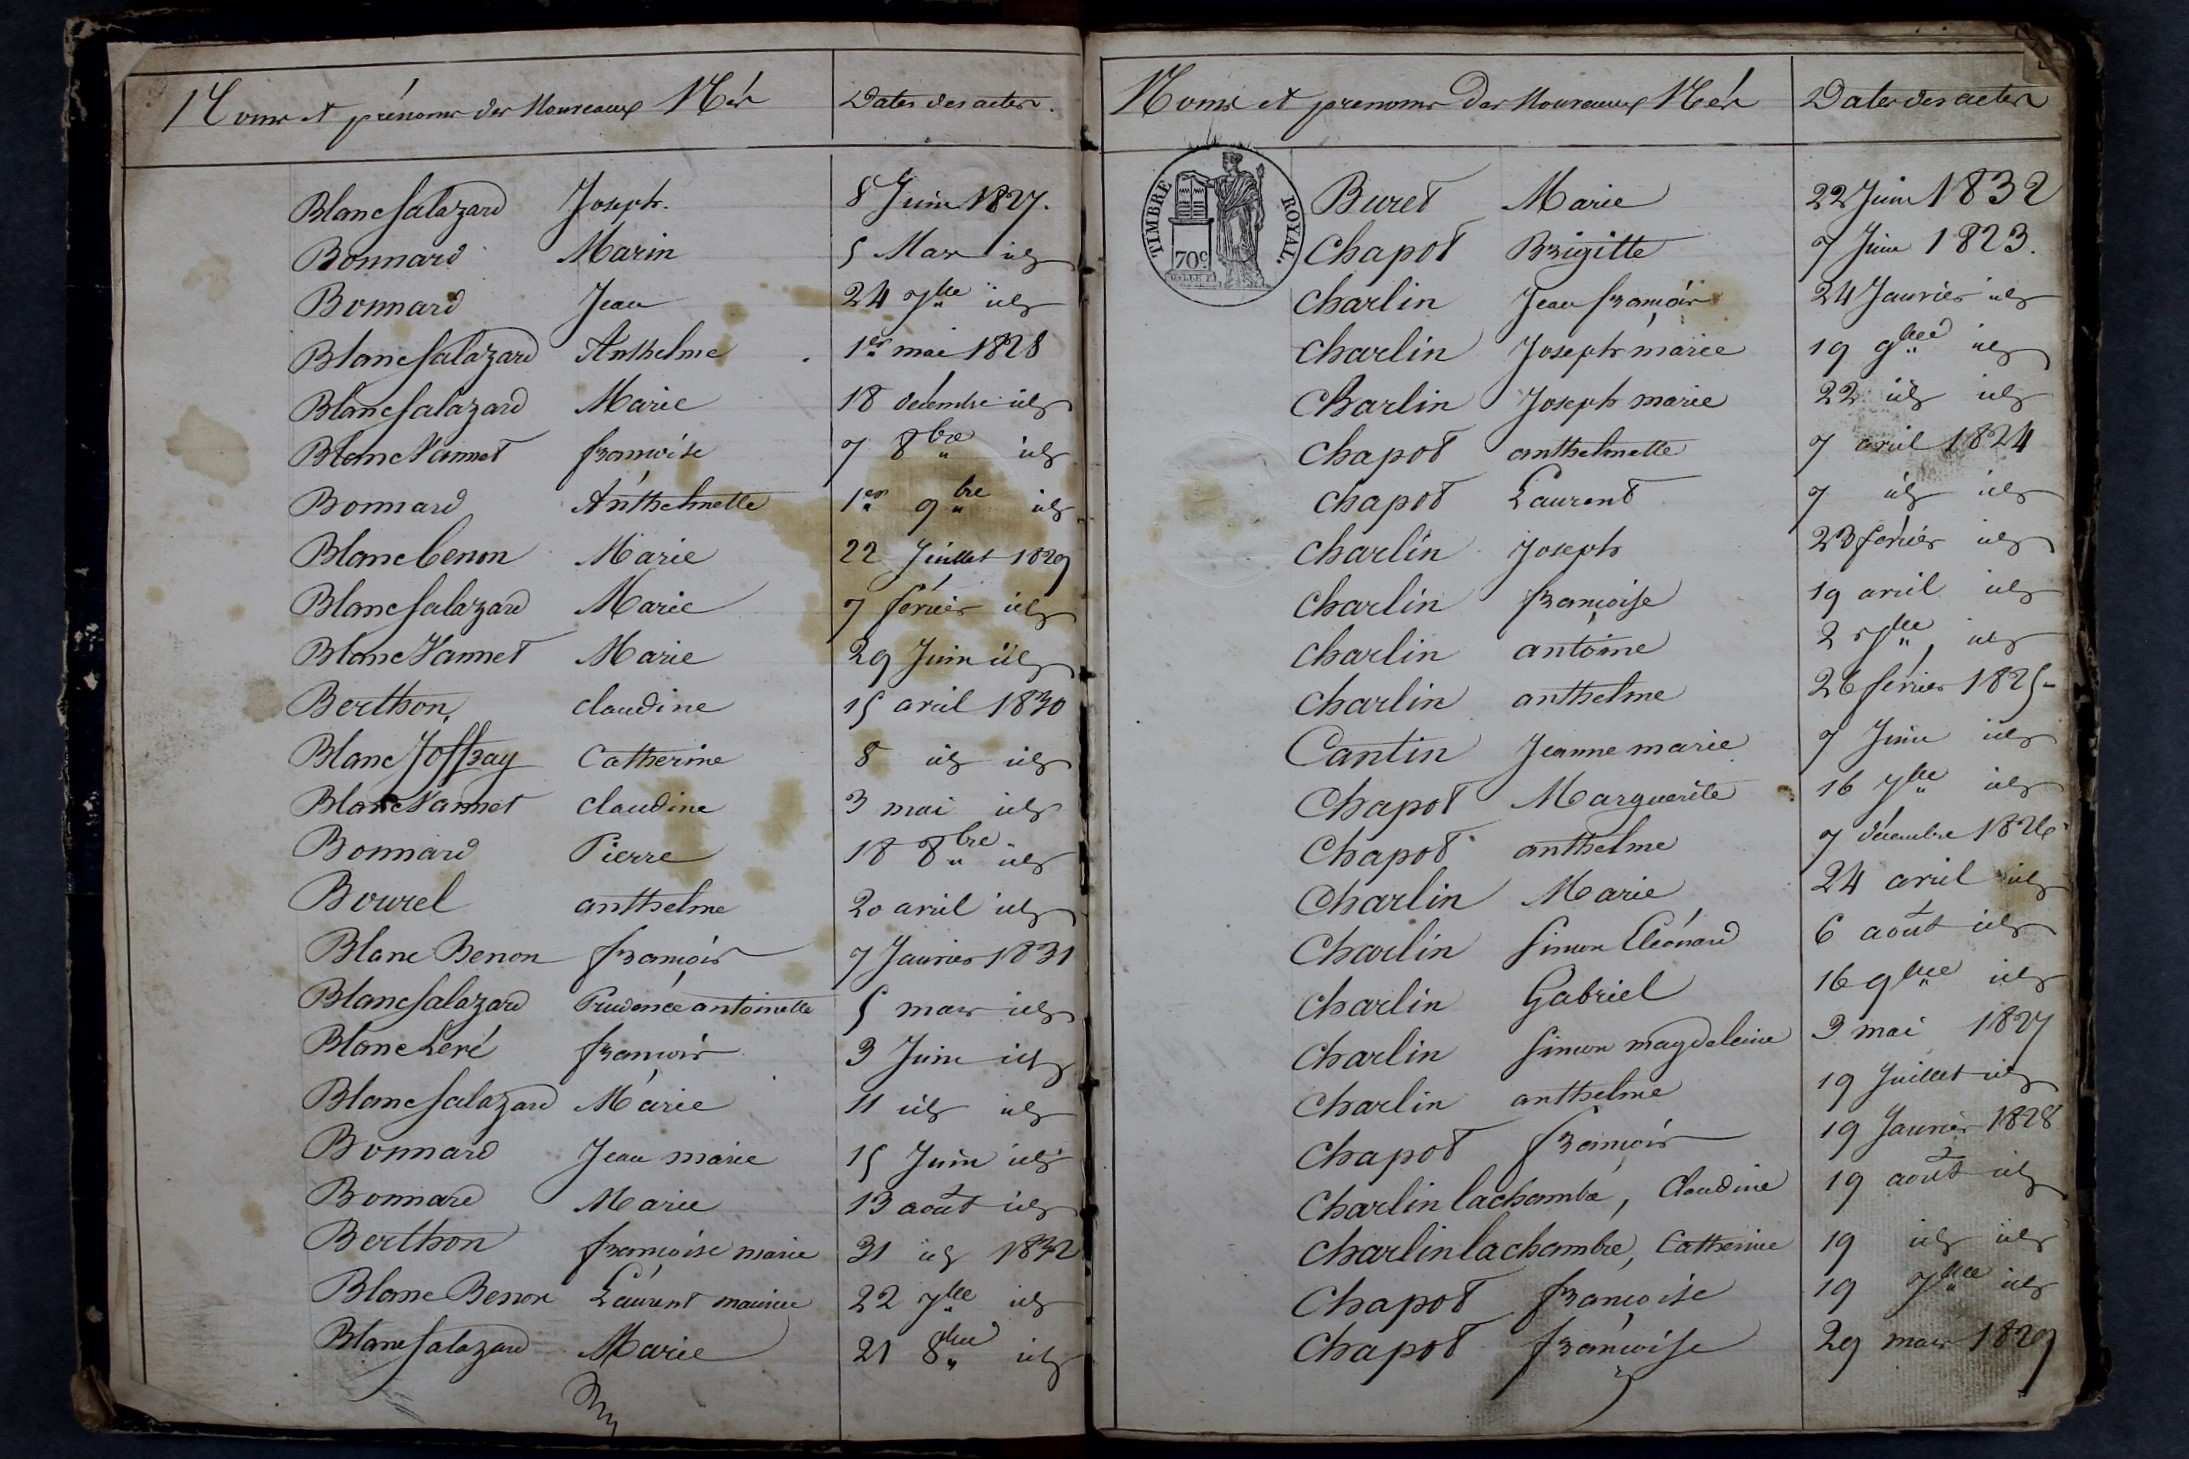 Noms et prénoms des Nouveaux Nés Dates des actes.
Blanc Salazard Joseph. 8 Juin 1827.
Bonnard Marin 5 Mars id
Bonnard Jean 24 7bre id
Blanc Salazard Anthelme 1er mai 1828
Blanc Salazard Marie 18 décembre id
Blanc Vannet françoise 7 8bre id
Bonnard Anthelmette 1er 9bre id
Blanc benon Marie 22 Juillet 1829
Blanc Salazard Marie 7 février id
Blanc Vannet Marie 29 Juin id
Berthon claudine 15 avril 1830
Blanc Joffray Catherine 8 id id
Blanc Vannet claudine 3 mai id
Bonnard Pierre 18 8bre id
Bourel anthelme 20 avril id
Blanc Benon françois 7 Janvier 1831
Blanc Salazard Prudence antoinette 5 mars id
Blanc Leré françois 3 Juin id
Blanc Salazard Marie 11 id id
Bonnard Jean marie 15 Juin id
Bonnard Marie 13 août id
Berthon françoise marie 31 id 1832
Blanc Benon Laurent maurice 22 7bre id
Blanc Salazard Marie 21 8bre id
Noms et prenoms des Nouveaux Nés Dates des actes
TIMBRE ROYAL.
70c
Buret Marie 22 Juin 1832
Chapot Brigitte 7 Juin 1823.
Charlin Jean françois 24 Janvier id
Charlin Joseph marie 19 9bre id
Charlin Joseph marie 22 id id
Chapot anthelmette 7 avril 1824
Chapot Laurent 7 id id
Charlin Joseph 23 février id
Charlin françoise 19 avril id
Charlin antoine 2 7bre id
Charlin anthelme 26 février 1825
Cantin Jeanne marie 7 Juin id
Chapot Marguerite 16 7bre id
Chapot anthelme 7 décembre 1826
Charlin Marie 24 avril id
Charlin Simon Eléonard 6 août id
Charlin Gabriel 16 9bre id
Charlin Simon magdeleine 3 mai 1827
Charlin anthelme 19 Juillet id
Chapot françois 19 Janvier 1828
Charlin lachambe, Claudine 19 août id
Charlin lachambre, Catherine 19 id id
Chapot françoise 19 7bre id
Chapot françoise 29 mars 1829